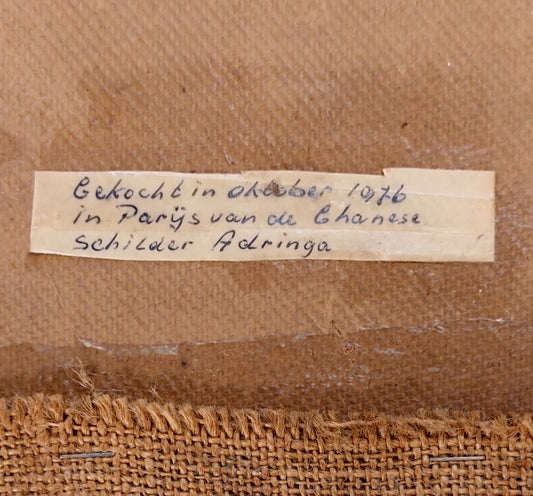 Gekocht in oktober 1976
in Parijs van de Ghanese
schilder Adringa